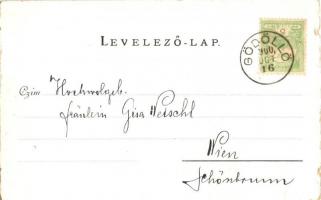 LEVELEZŐ-LAP.
GÖDÖLLŐ
900.
OCT
16
Czim Hochwolgeb.
Fräulein Gisa Petschl
Wien
Schönbrunn